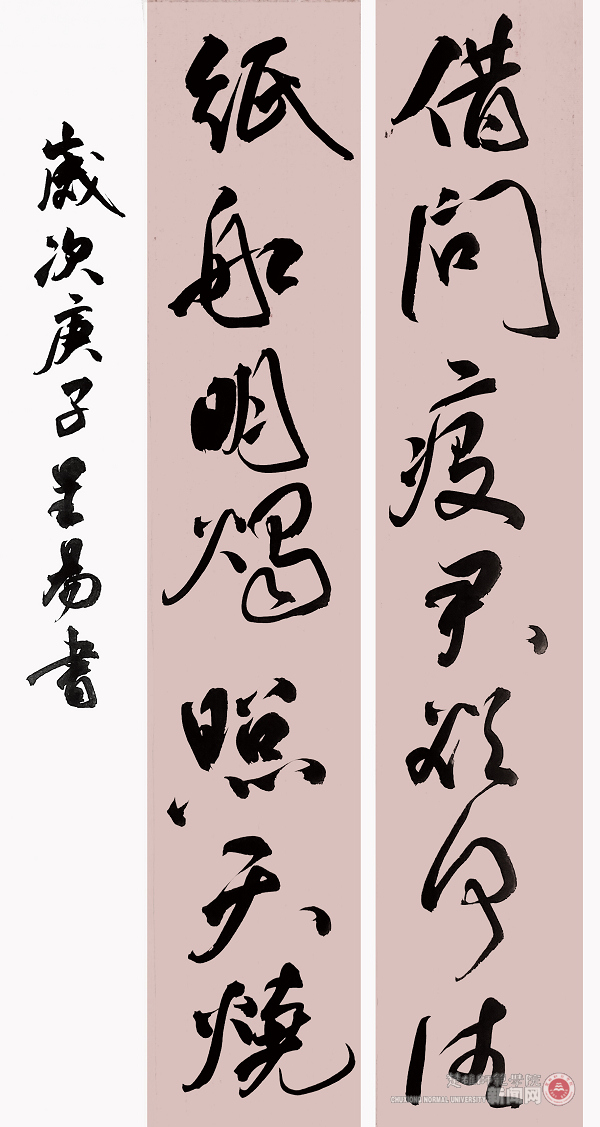 借问疫君欲何往
紙船明燭照天燒
歲次庚子易書
楚雄师范学院
CHUXIONG NORMAL UNIVERSITY
新闻网